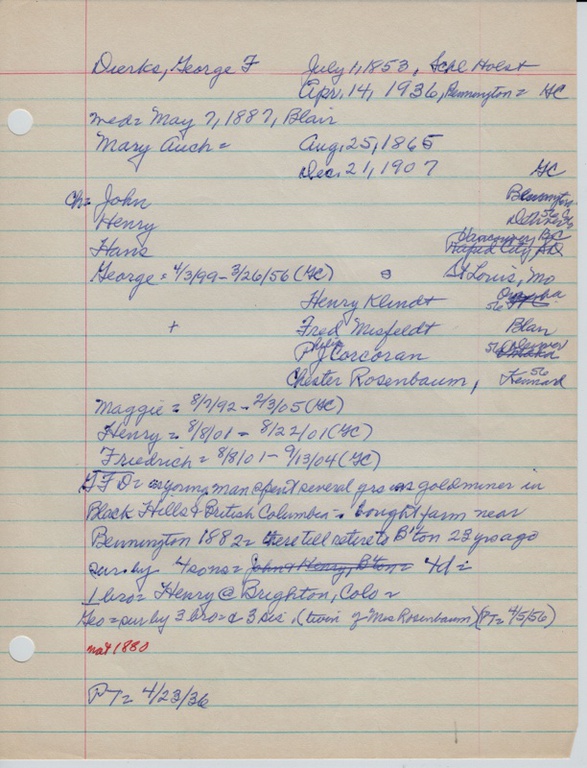 Dierks, George F July 1, 1853, Schl Holst
Apr. 14, 1936, Bennington = GC
med = May 7, 1887, Blair
Mary Auch = Aug, 25, 1865
Dec. 21, 1907 GC
Ch = John Bennington
Henry
Hans Vancouver, BC Rapid City, SD
George = 4/3/99 - 3/26/56 (GC) St Louis, Mo
Henry Klindt 56 Omaha
+ Fred Misfeldt Blair
Philip J Corcoran 56 Denver Omaha
Chester Rosenbaum, 56 Kennard
Maggie = 8/7/92 - 2/3/05 (GC)
Henry = 8/8/01 - 8/22/01 (GC)
Friedrich = 8/8/01 - 9/13/04 (GC)
GFD = as young man spent several yrs as goldminer in
Black Hills & British Columbia = bought farm near
Bennington 1882 = there till retire to B'ton 23 yrs ago
sur. by 4 sons = John & Henry, B'ton = 4d =
1 bro = Henry @ Brighton, Colo =
Geo = sur by 3 bro = & 3 sis (twin of Mrs Rosenbaum) (PT = 4/5/56)
nat 1880
PT = 4/23/36